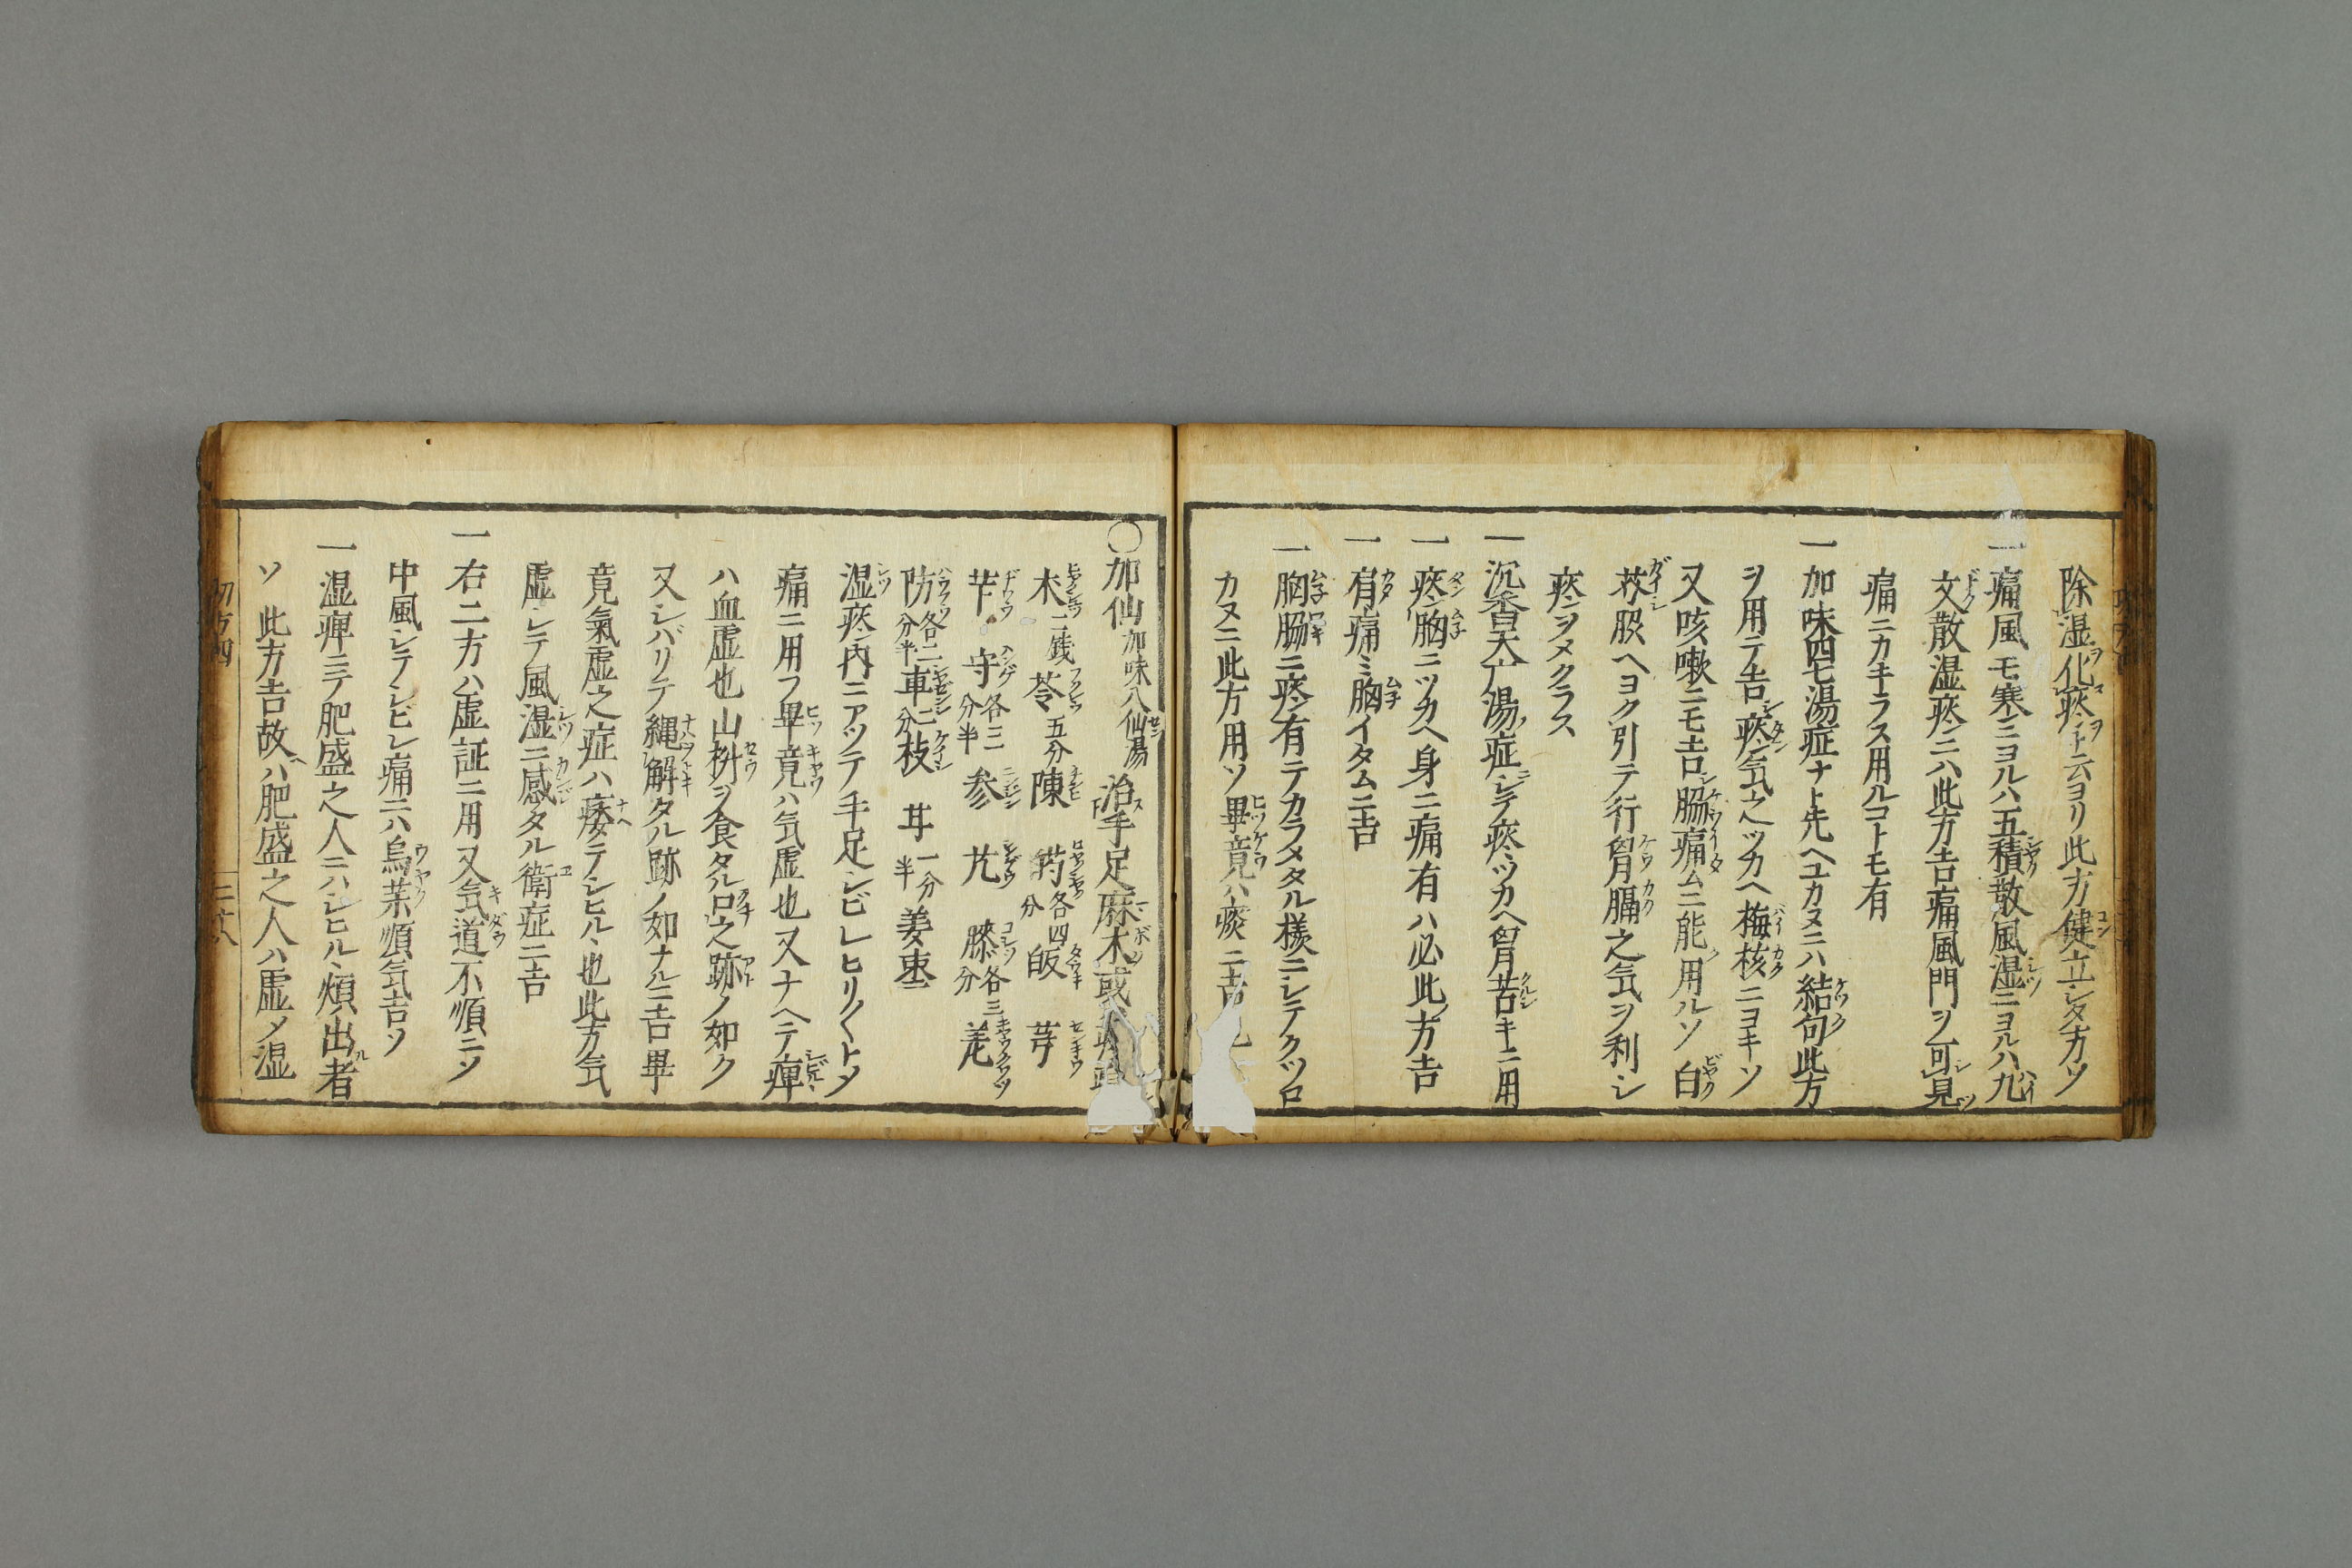 除湿化痰ト云ヨリ此方健立シタ方ソ
一痛風モ寒ニヨルハ五積散風湿ニヨルハ九
文散湿痰ニハ此方吉痛風門ヲ可見
痛ニカキラス用ルコトモ有
一加味四七湯症ナト先ヘユカヌニハ結句此方
ヲ用テ吉痰気之ツカヘ梅核ニヨキソ
又咳嗽ニモ吉脇痛ムニ能用ルソ白
芥股ヘヨク引テ行胷膈之気ヲ利シ
痰ヲメクラス
一沉香天丁湯症ニシテ痰ツカヘ胷苦キニ用
一痰胸ニツカヘ身ニ痛有ハ必此方吉
一肩痛ミ胸イタムニ吉
一胸脇ニ痰有テカラメタル様ニシテクツロ
カヌニ此方用ソ畢竟ハ痰ニ吉
〇加仙 加味八仙湯 治手足麻木或
木二銭 苓五分 陳 芍各四分 皈 芎
芐 守各三分半 参 艽 膝各三分 羌
防各二分半 車二分 枝 甘一分半 姜 枣
湿痰内ニアツテ手足シビレヒリ〱トメ
痛ニ用フ畢竟ハ気虚也又ナヘテ痺
ハ血虚也山椒ヲ食タル口之跡ノ如ク
又シバリテ縄解タル跡ノ如ナルニ吉畢
竟氣虚之症ハ痿テシヒル也此方気
虚シテ風湿ニ感タル衛症ニ吉
一右二方ハ虚証ニ用又気道不順ニソ
中風シテシビレ痛ニハ烏薬順気吉ソ
一湿痺ニテ肥盛之人ニハシヒル煩出者
ソ此方吉故ハ肥盛之人ハ虚メ湿
切方四
二十八